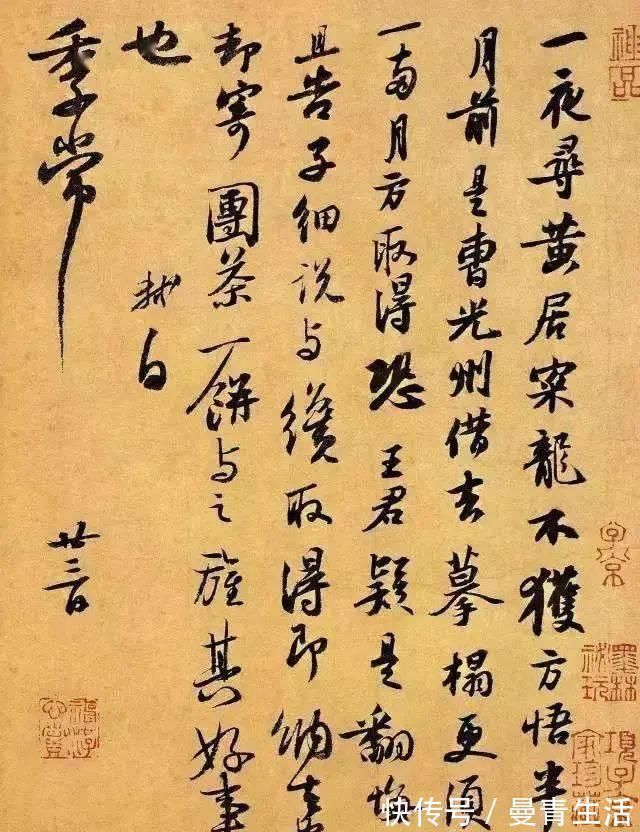 一夜尋黃居寀龍不獲方悟半
月前是曹光州借去摹榻更須
一兩月方取得恐王君疑是翻悔
且告子細說與纔取得即納去
却寄團茶一餅與之旌其好事
也
軾白
季常
廿三日
神品
子京
墨林祕玩
快传号 / 曼青生活